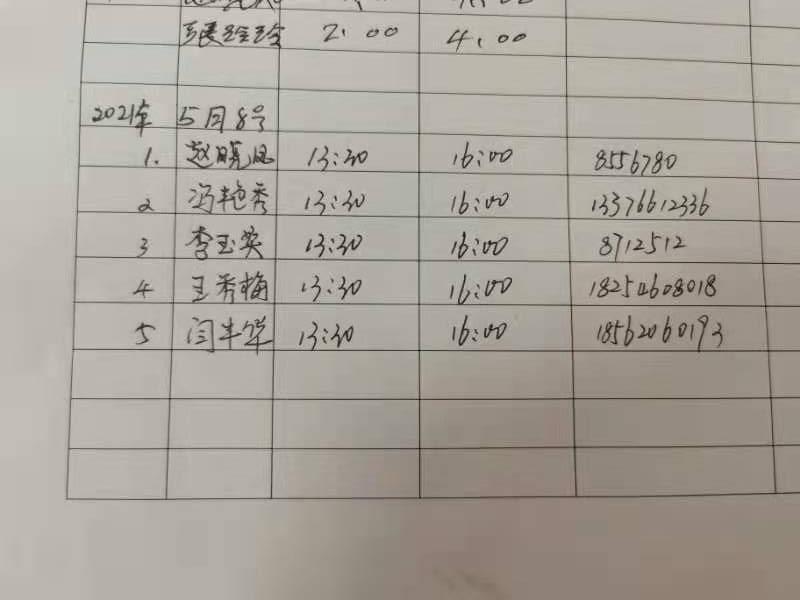 张玲玲 2:00 4:00
2021年 5月8号
1. 赵晓凤 13:30 16:00 8556780
2 冯艳秀 13:30 16:00 13376612336
3 李玉英 13:30 16:00 8712512
4 王秀梅 13:30 16:00 18254608018
5 闫 13:30 16:00 18562060193